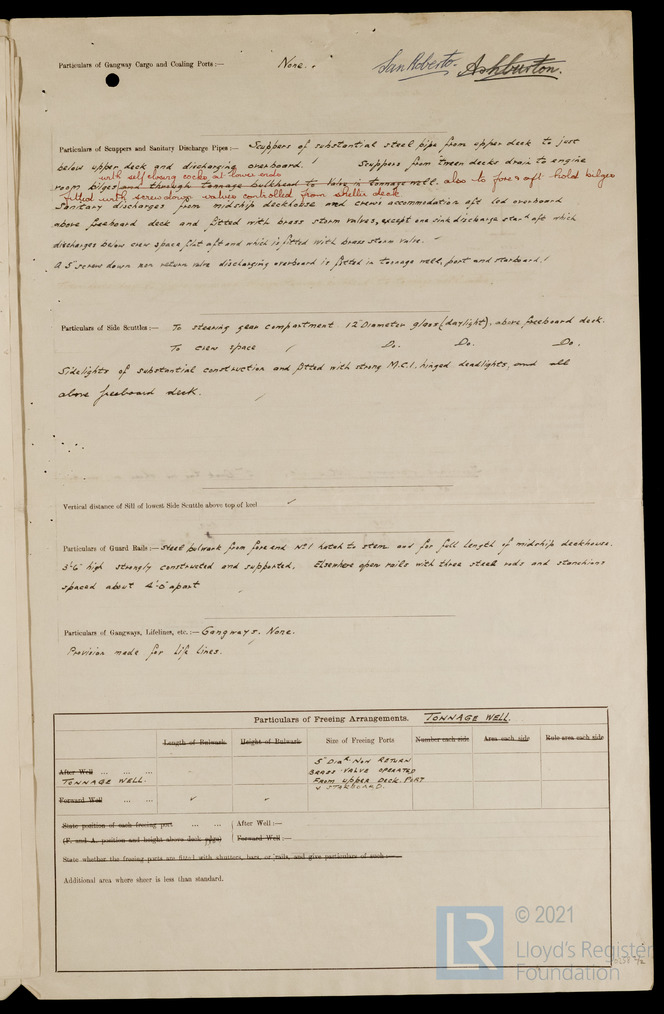 Particulars of Gangway Cargo and Coaling Ports:— None. San Roberto. Ashburton.
Particulars of Scuppers and Sanitary Discharge Pipes:— Scuppers of substantial steel pipe from upper deck to just
below upper deck and discharging overboard. Scuppers from tween decks drain to engine
with self closing cocks at lower ends
room bilges and through tonnage bulkhead to valve in tonnage well. also to fore & aft hold bilges
fitted with screwdown valves controlled from shelter deck
Sanitary discharges from midship deckhouse and crews accommodation aft led overboard
above freeboard deck and fitted with brass storm valves, except one sink discharge starbd aft which
discharges below crew space flat aft and which is fitted with brass storm valve.
A 5" screw down non return valve discharging overboard is fitted in tonnage well, port and starboard.
Particulars of Side Scuttles:— To steering gear compartment 12" Diameter glass (daylight), above freeboard deck.
To crew space Do. Do. Do.
Sidelights of substantial construction and fitted with strong M.C.I. hinged deadlights, and all
above freeboard deck.
Vertical distance of Sill of lowest Side Scuttle above top of keel
Particulars of Guard Rails:— Steel bulwark from fore end No 1 hatch to stem and for full length of midship deckhouse.
3'-6" high strongly constructed and supported. Elsewhere open rails with three steel rods and stanchions
spaced about 4'-0" apart
Particulars of Gangways, Lifelines, etc.:— Gangways. None.
Provision made for Life Lines.
Particulars of Freeing Arrangements. TONNAGE WELL.
Length of Bulwark Height of Bulwark Size of Freeing Ports Number each side Area each side Rule area each side
After Well ... ... ...
TONNAGE WELL.
5" Diar. NON RETURN
BRASS VALVE OPERATED
FROM UPPER DECK. PORT
& STARBOARD.
Forward Well ... ... ...
State position of each freeing port ... ... After Well:—
(F. and A. position and height above deck edge) Forward Well:—
State whether the freeing ports are fitted with shutters, bars, or rails, and give particulars of each:—
Additional area where sheer is less than standard.
LR
© 2021
Lloyd's Register
Foundation